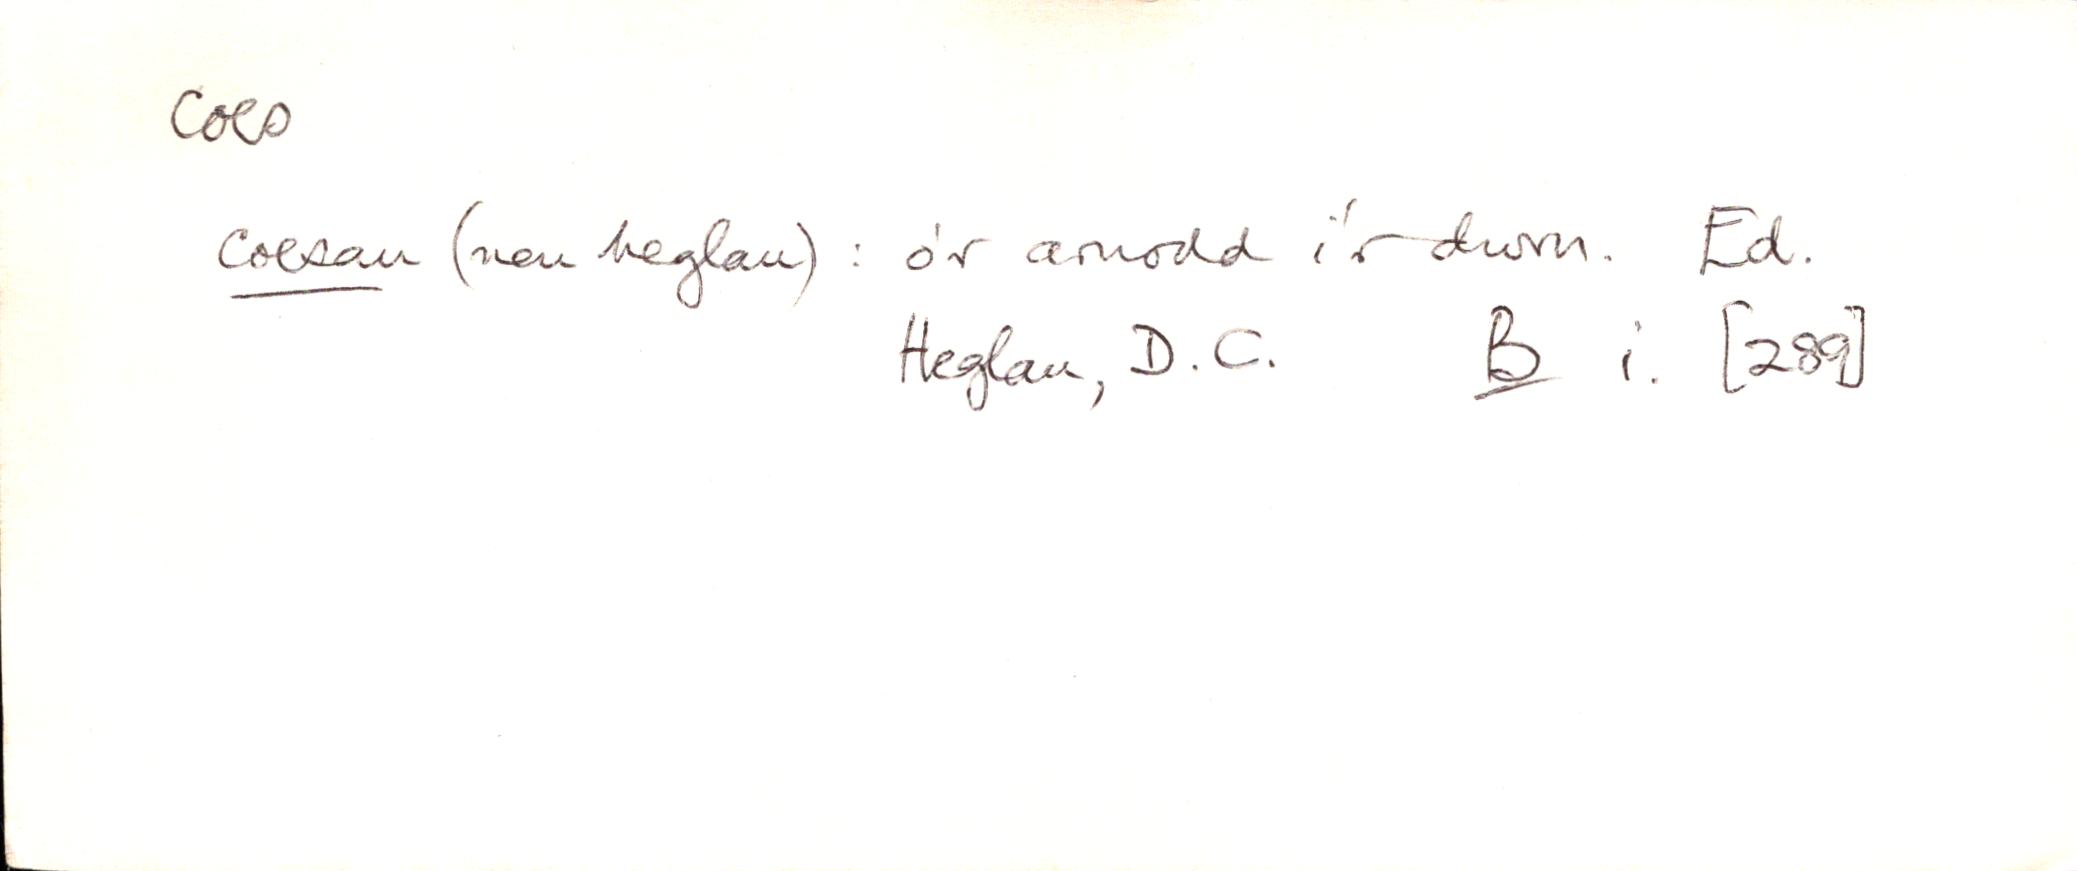 Coes
coesau (neu heglau): o'r arnodd i'r dwrn. Ed.
Heglau, D.C. B i. [289]